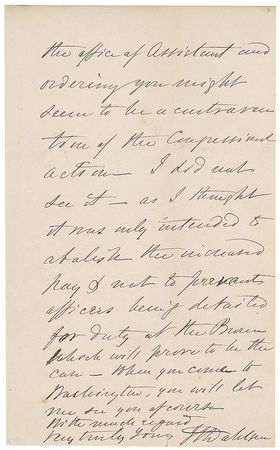 the office of Assistant and
ordering you might
seem to be a contraven
tion of the Congressional
action I did not
see it - as I thought
it was only intended to
abolish the increased
pay & not to prevent
officers being detailed
for duty at the Bureau
which will prove to be the
case - When you come to
Washington, you will let
me see you of course
With much regard
very truly yours J A Dahlgren